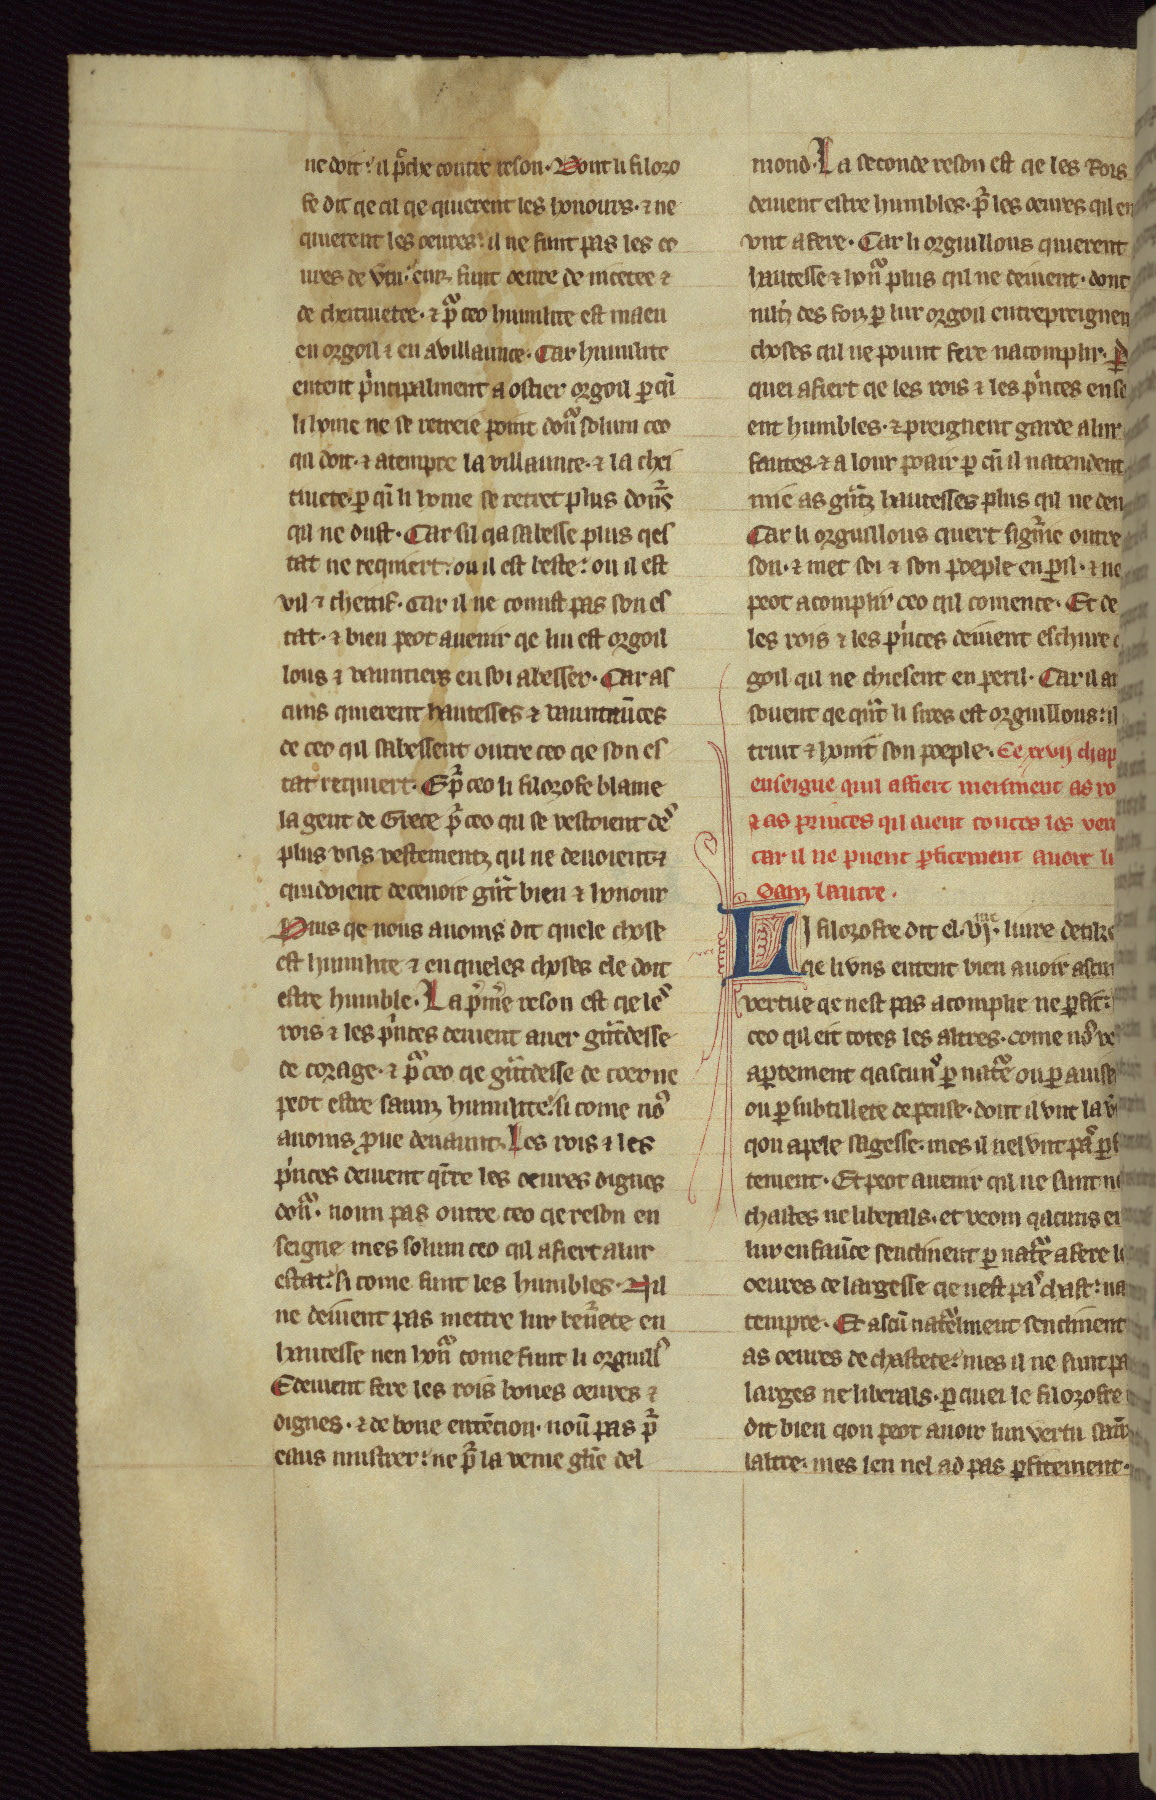 ne doit: il peche contre reson. Dont li filozo
fe dit qe cil qe quierent les honours. ⁊ ne
quierent les oeures: il ne funt pas les oe
ures de vtu. einz funt oeure de nicetee ⁊
de cheitiuetee. ⁊ pᵃ ceo humilite est maeu
en orgoil ⁊ en auillaunce. Car humilite
entent pͥncipalment a oster orgoil ꝑ qi
li home ne se retreie point donᵃ solum ceo
qil doit. ⁊ atempre la villaunce. ⁊ la chei
tiuete. ꝑ qi li home se retret plus donᵃs
qil ne dust. Car sil qa sabesse plus qes
tat ne requiert: ou il est beste: ou il est
vil ⁊ chetif. Car il ne conust pas son es
tat. ⁊ bien peot auenir qe lui est orgoil
lous ⁊ vauntiers en soi abesser. Car as
cuns quierent hautesses ⁊ vauntaūces
de ceo qil sabessent outre ceo qe son es
tat requiert. E pᵃ ceo li filozofe blame
la gent de Grece pᵃ ceo qil se vestoient de
plus vils vestementz qil ne deuoient. ⁊
quidoient deceuoir gᵃt bien ⁊ honour
Puis qe nous auoms dit quele chose
est humilite ⁊ en queles choses ele doit
estre humble. La pͥmͤe reson est qe les
rois ⁊ les pͥnces deiuent auer gᵃtdesse
de corage. ⁊ pᵃ ceo qe gᵃtdesse de coer ne
peot estre saunz humilite: si come noˢ
auoms ꝓue deuaunt. Les rois ⁊ les
pͥnces deiuent qͥrre les oeures dignes
donᵃ. noun pas outre ceo qe reson en
seigne mes solum ceo qil afiert a lur
estat: si come funt les humbles. Nil
ne deiuent pas mettre lur beneᵃte en
hautesse nen honᵃ come funt li orguillˢ
E deiuent fere les rois bones oeures ⁊
dignes. ⁊ de bone entēcion. noū pas pᵃ
eaus mustrer: ne pᵃ la veine glͥe del
mond. La seconde reson est qe les Rois
deiuent estre humbles. pᵃ les oeures qil en
vnt a fere. Car li orguillous quierent
hautesse ⁊ honᵃ plus qil ne deiuent. dont
mltz des foiz ꝑ lur orgoil entrepreignen
choses qil ne pount fere nacomplir. ꝑ
quei afiert qe les rois ⁊ les pͥnces en se
ent humbles. ⁊ preignent garde a lur
fautes. ⁊ a lour poair ꝑ qi il natendent
mie as gᵃtz hautesses plus qil ne deu
Car li orguillous quert figᵃne outre
son. ⁊ met soi ⁊ son poeple en ꝑil. ⁊ ne
peot acomplir ceo qil comence. Et de
les rois ⁊ les pͥnces deiuent eschure
goil qil ne chiesent en peril. Car il a
souent qe qᵃt li sires est orguillous: il
truit ⁊ honit son poeple. Ce xxvij chap
enseigne quil affiert meisment as ro
⁊ as princes qil aient toutes les ver
car il ne puent ꝑfitement auoir l
sanz lautre.
LI filozofre dit el vjᵐᵉ. liure
qe li vns entent bien auoir ascu
vertue qe nest pas acomplie ne ꝑfit:
ceo qil eit totes les altres. come noˢ ve
aꝑtement qascunˢ ꝑ natᵃe ou ꝑ auise
ou ꝑ subtillete de pense. dont il vnt la v
qon apele sagesse. mes il nel vnt paˢ ꝑf
tement. Et peot auenir qil ne sunt ne
chastes ne liberals. et veom qacuns en
lur enfaūce senclinent ꝑ natᵃe a fere l
oeures de largesse qe nest paˢ chast: na
tempre. Et ascū natᵃlment senclinent
as oeures de chastete: mes il ne sunt pa
larges ne liberals. ꝑ quei le filozofre
dit bien qon peot auoir lun vertu san
laltre. mes len nel ad pas ꝑfitement.